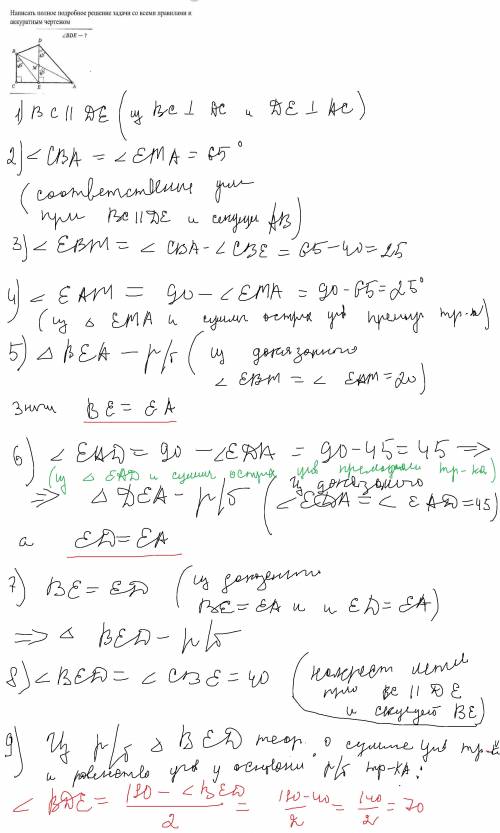 Написать полное подробное решение задачи со всеми правилами и
аккуратным чертежом
∠BDE – ?
D
B
M
C
E
A
1) BC || DE (из BC ⊥ AC и DE ⊥ AC)
2) ∠CBA = ∠EMA = 65°
(соответственные углы
при BC || DE и секущей AB)
3) ∠EBM = ∠CBA - ∠CBE = 65 - 40 = 25
4) ∠EAM = 90 - ∠EMA = 90 - 65 = 25°
(из △ EMA и сумма острых углов прямоуг тр-ка)
5) △ BEA - р/б (из доказанного
∠EBM = ∠EAM = 20)
Значит BE = EA
6) ∠EAD = 90 - ∠EDA = 90 - 45 = 45 =>
(из △ EAD и сумма острых углов прямоугол тр-ка)
=> △ DEA - р/б (из доказаного
∠EDA = ∠EAD = 45)
а ED = EA
7) BE = ED (из доказанного
BE = EA и и ED = EA)
=> △ BED - р/б
8) ∠BED = ∠CBE = 40 (накрест лежащие
при BC || DE
и секущей BE)
9) Из р/б △ BED теор. о сумме углов тр-ка
и равенство углов у основания р/б тр-ка:
∠BDE = (180 - ∠BED)/2 = (180 - 40)/2 = 140/2 = 70